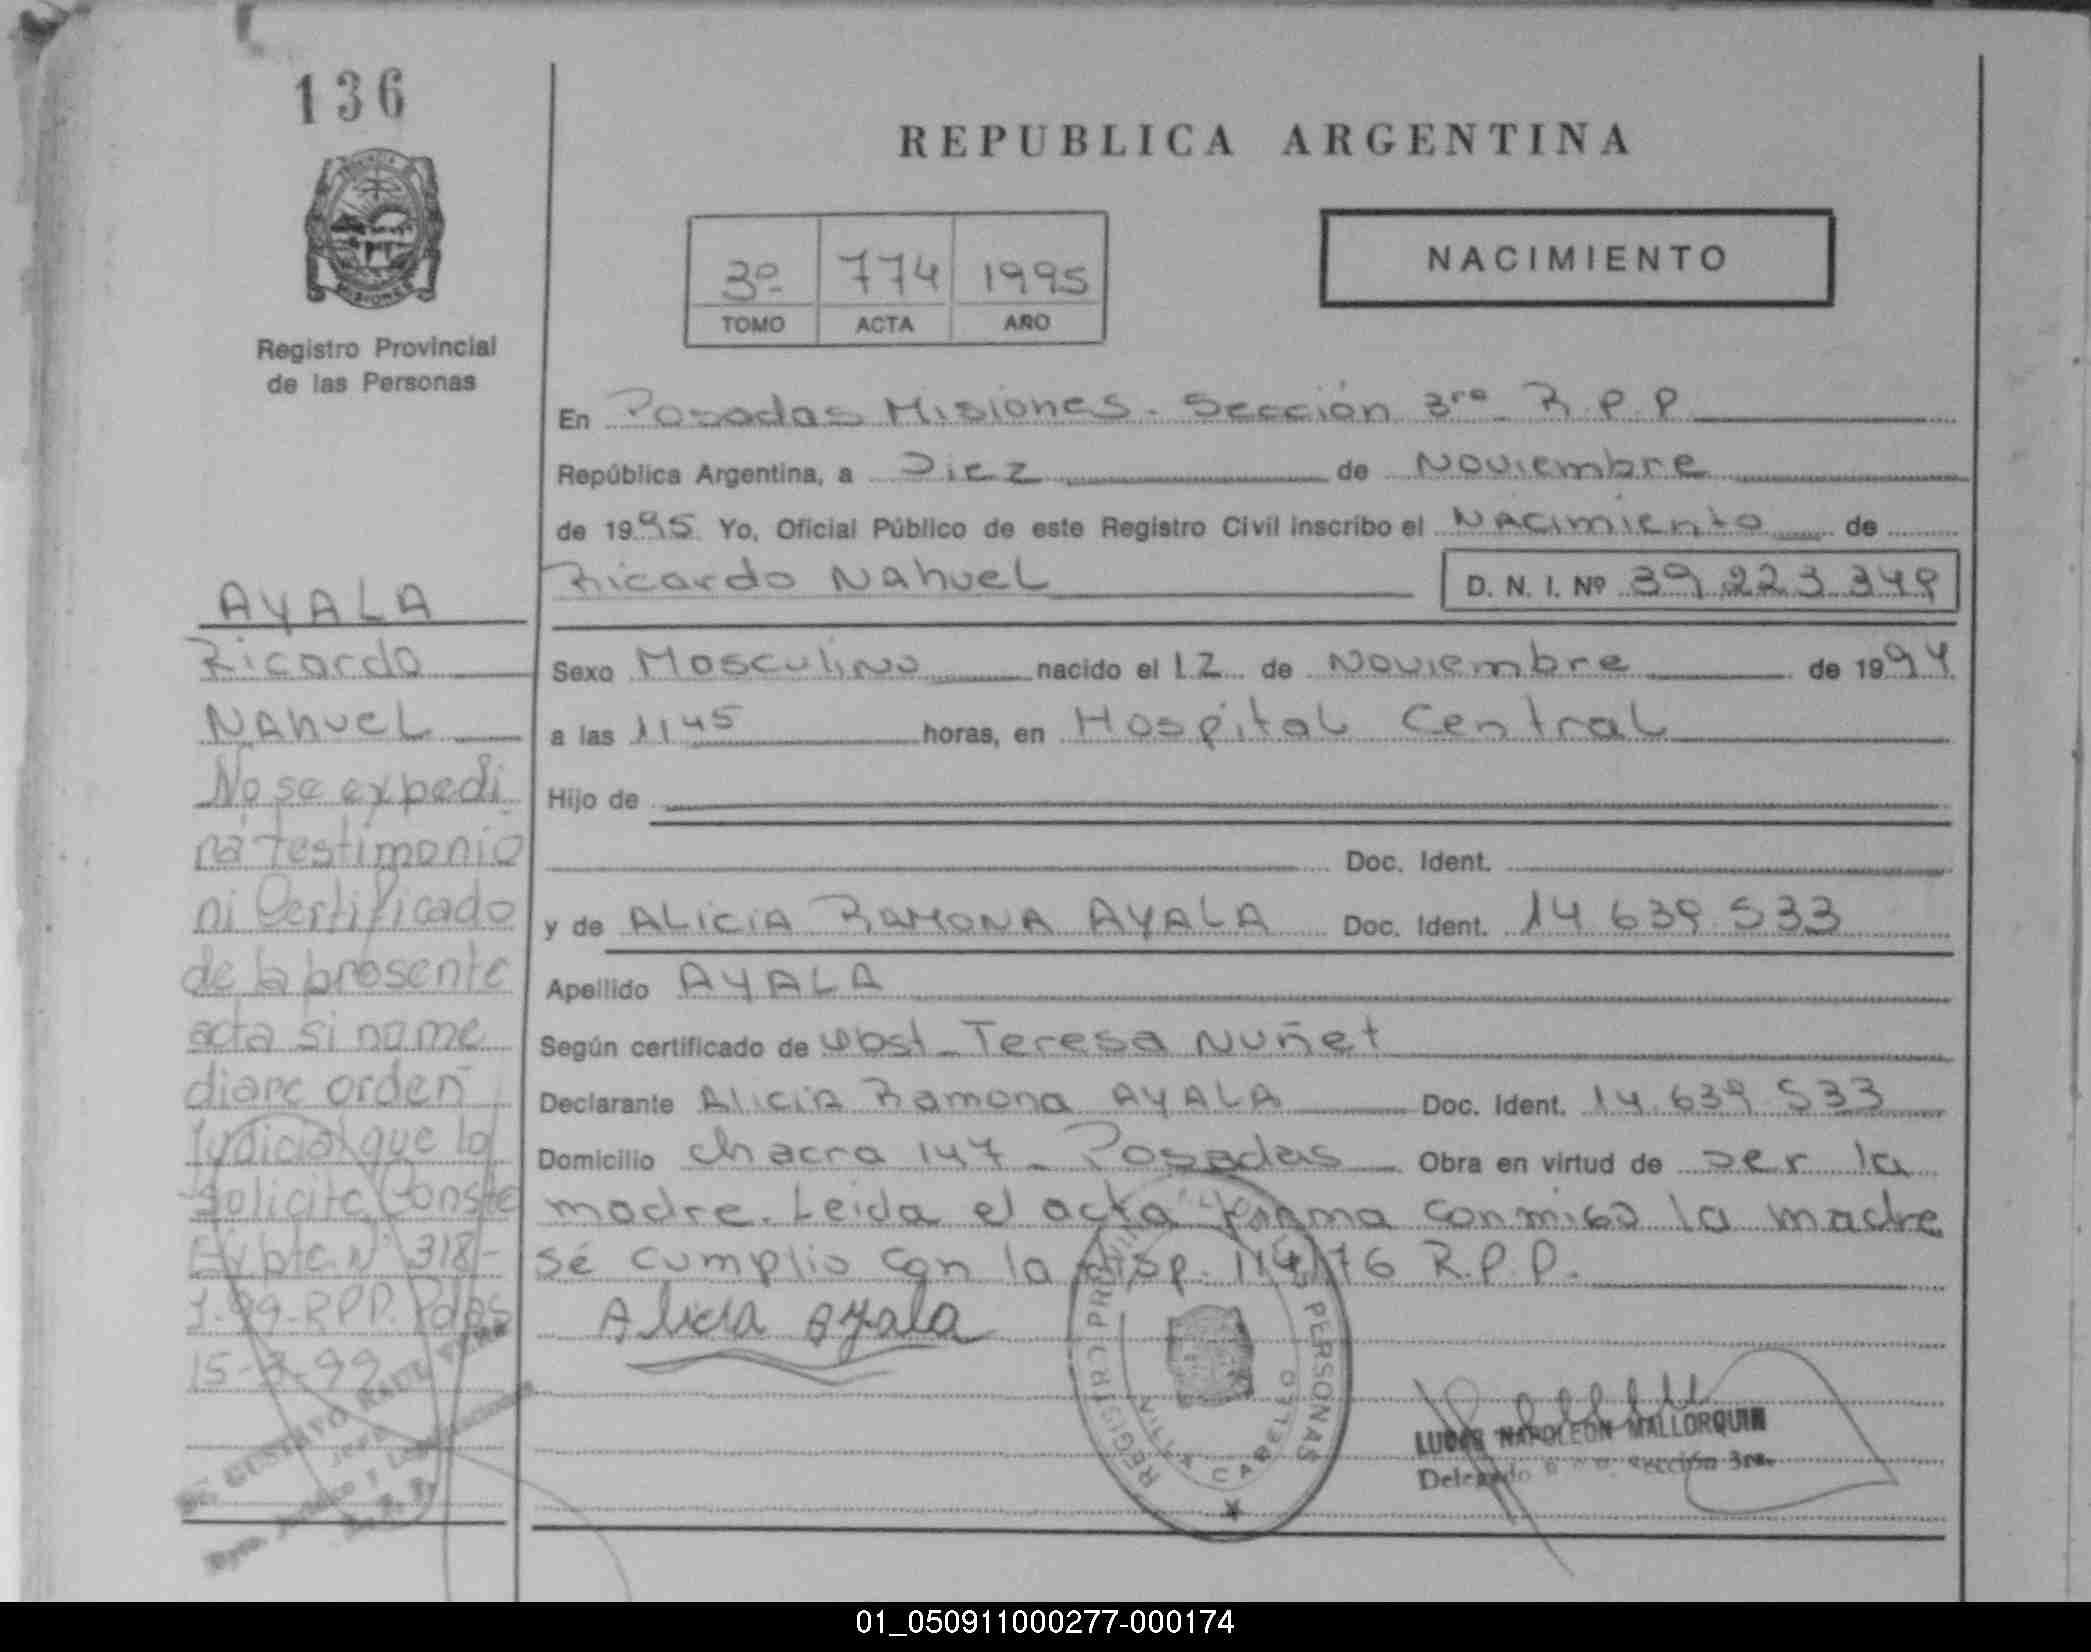 136
REPUBLICA ARGENTINA
NACIMIENTO
3º 774 1995
TOMO ACTA AÑO
MISIONES
Registro Provincial
de las Personas
En Posadas Misiones - Sección 3ra R.P.P
República Argentina, a Diez de Noviembre
de 1995 Yo, Oficial Público de este Registro Civil inscribo el Nacimiento de
Ricardo Nahuel D. N. I. Nº 39.223.349
Sexo Masculino nacido el 12 de Noviembre de 1994
a las 11 45 horas, en Hospital Central
Hijo de
Doc. Ident.
y de ALICIA RAMONA AYALA Doc. Ident. 14.639.533
Apellido AYALA
Según certificado de obst. Teresa Nuñet
Declarante Alicia Ramona AYALA Doc. Ident. 14.639.533
Domicilio chacra 147 - Posadas Obra en virtud de ser la
madre. Leida el acta firma conmigo la madre
se cumplio con la disp. 114/76 R.P.P.
Alicia Ayala
AYALA
Ricardo
Nahuel
No se expedi
rá testimonio
ni Certificado
de la presente
acta si no me
diare orden
Judicial que lo
solicite Conste
Expte. Nº 318-
J-99-RPP. Pdas
15- -99
GUSTAVO
REGISTRO PERSONAS
VILLA CABELLO
LUCAS NAPOLEON MALLORQUIN
Delegado Sección 3ra.
01_050911000277-000174